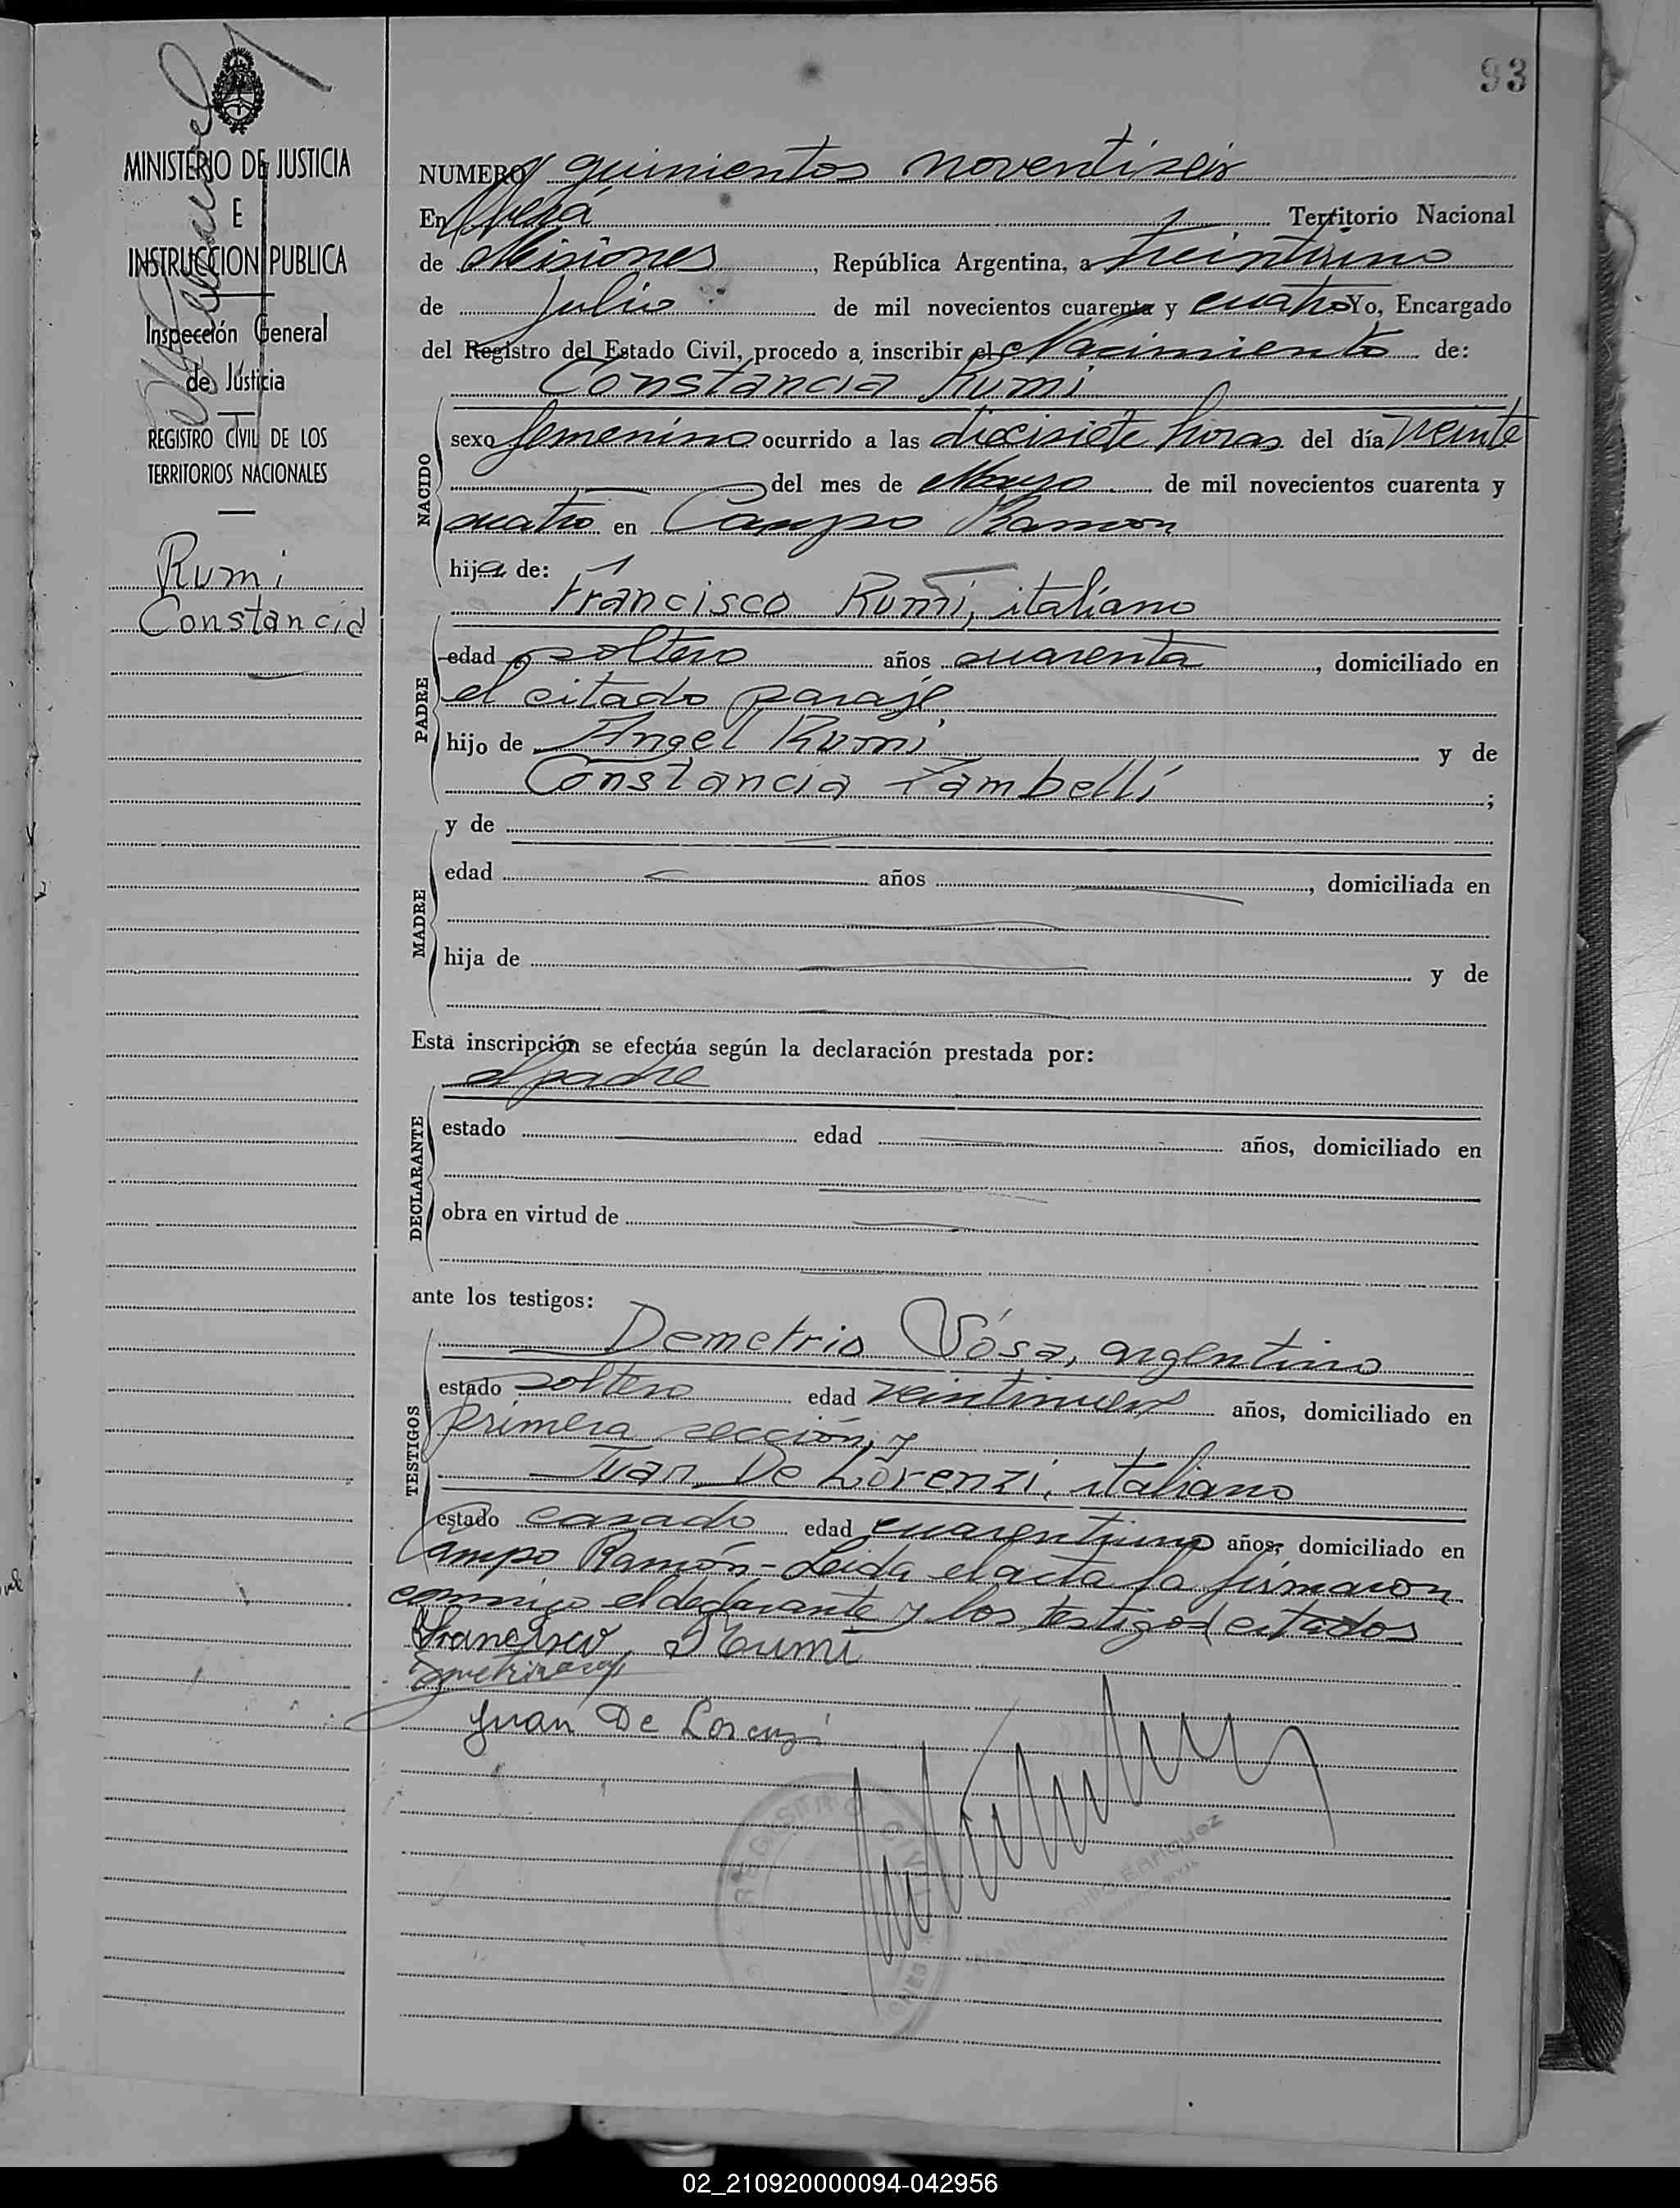 93
MINISTERIO DE JUSTICIA
E
INSTRUCCION PUBLICA
Inspección General
de Justicia
REGISTRO CIVIL DE LOS
TERRITORIOS NACIONALES
Rumi
Constancia
NUMERO quinientos noventiseis
En Oberá Territorio Nacional
de Misiones, República Argentina, a treintiuno
de Julio de mil novecientos cuarenta y cuatro Yo, Encargado
del Registro del Estado Civil, procedo a inscribir el Nacimiento de:
Constancia Rumi
NACIDO
sexo femenino ocurrido a las diecisiete horas del día veinte
del mes de Marzo de mil novecientos cuarenta y
cuatro en Campo Ramon
hija de:
Francisco Rumi, italiano
PADRE
edad soltero años cuarenta, domiciliado en
el citado paraje
hijo de Angel Rumi y de
Constancia Zambelli;
y de
MADRE
edad años, domiciliada en
hija de y de
Esta inscripción se efectúa según la declaración prestada por:
el padre
DECLARANTE
estado edad años, domiciliado en
obra en virtud de
ante los testigos:
TESTIGOS
Demetrio Sósa, argentino
estado soltero edad veintinueve años, domiciliado en
primera sección, y
Juan De Lorenzi, italiano
estado casado edad cuarentiuno años, domiciliado en
Campo Ramón - Leida el acta la firmaron
conmigo el declarante y los testigos citados
Francisco Rumi
Juan De Lorenzi
REGISTRO CIVIL
Enriquez
02_210920000094-042956